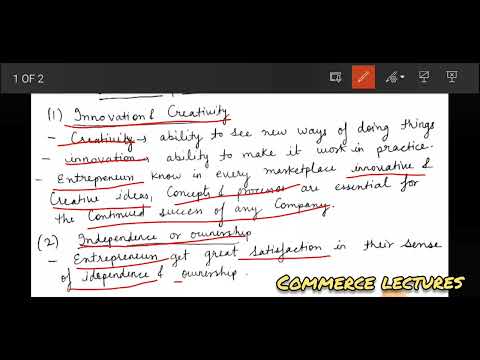 1 OF 2
(1) Innovation & Creativity
- Creativity → ability to see new ways of doing things
- innovation → ability to make it work in practice.
- Entrepreneur know in every marketplace innovative &
Creative ideas, Concepts & processes are essential for
the Continued success of any Company.
(2) Independence or ownership
- Entrepreneur get great satisfaction in their sense
of idependence & ownership.
COMMERCE LECTURES